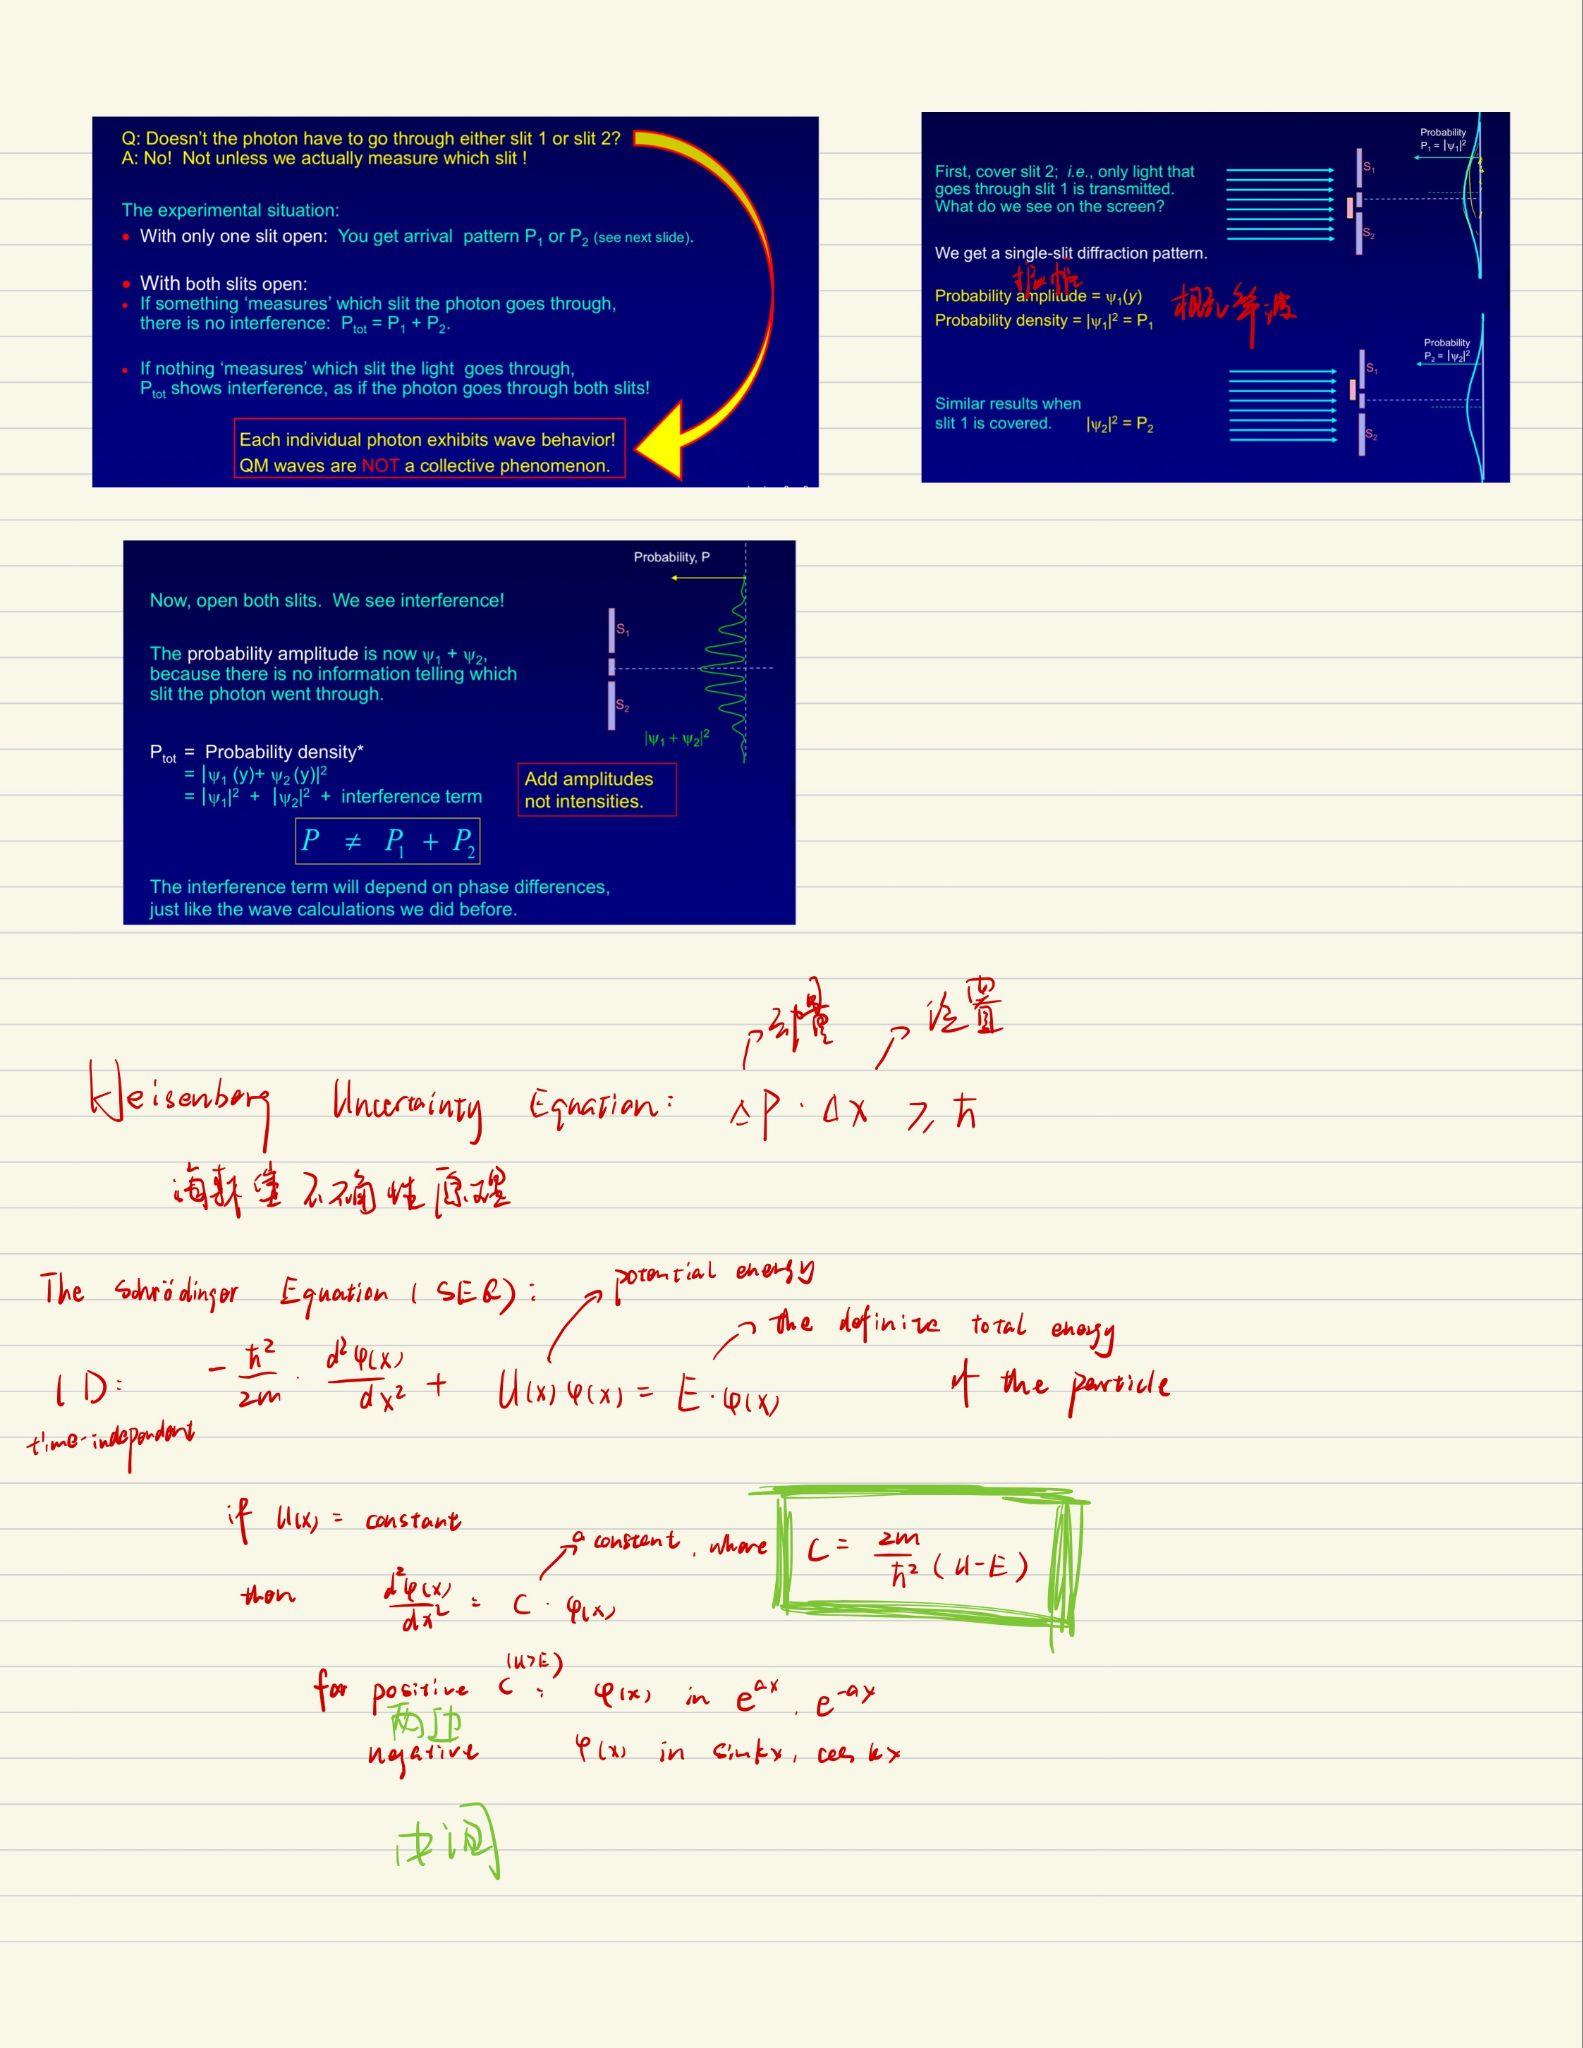 Q: Doesn't the photon have to go through either slit 1 or slit 2?
A: No! Not unless we actually measure which slit !
The experimental situation:
• With only one slit open: You get arrival pattern P₁ or P₂ (see next slide).
• With both slits open:
• If something 'measures' which slit the photon goes through,
there is no interference: Pₜₒₜ = P₁ + P₂.
• If nothing 'measures' which slit the light goes through,
Pₜₒₜ shows interference, as if the photon goes through both slits!
Each individual photon exhibits wave behavior!
QM waves are NOT a collective phenomenon.
Probability
P₁ = |ψ₁|²
First, cover slit 2; i.e., only light that
goes through slit 1 is transmitted.
What do we see on the screen?
S₁
S₂
We get a single-slit diffraction pattern.
振幅
Probability amplitude = ψ₁(y)
Probability density = |ψ₁|² = P₁
概率波
Probability
P₂ = |ψ₂|²
S₁
S₂
Similar results when
slit 1 is covered. |ψ₂|² = P₂
Probability, P
Now, open both slits. We see interference!
S₁
The probability amplitude is now ψ₁ + ψ₂,
because there is no information telling which
slit the photon went through.
S₂
|ψ₁ + ψ₂|²
Pₜₒₜ = Probability density*
= |ψ₁ (y)+ ψ₂ (y)|²
= |ψ₁|² + |ψ₂|² + interference term
Add amplitudes
not intensities.
P ≠ P₁ + P₂
The interference term will depend on phase differences,
just like the wave calculations we did before.
动量 位置
Heisenberg Uncertainty Equation: ΔP · Δx ≥ ħ
海森堡不确性原理
The Schrödinger Equation (SEQ): potential energy
the definite total energy
of the particle
1D: -ħ²/2m · d²φ(x)/dx² + U(x)φ(x) = E·φ(x)
time-independent
if U(x) = constant
a constant, where C = 2m/ħ² (U-E)
then d²φ(x)/dx² = C · φ(x)
(U>E)
for positive C : φ(x) in eᵃˣ, e⁻ᵃˣ
两边
negative φ(x) in sinkx, cos kx
中间